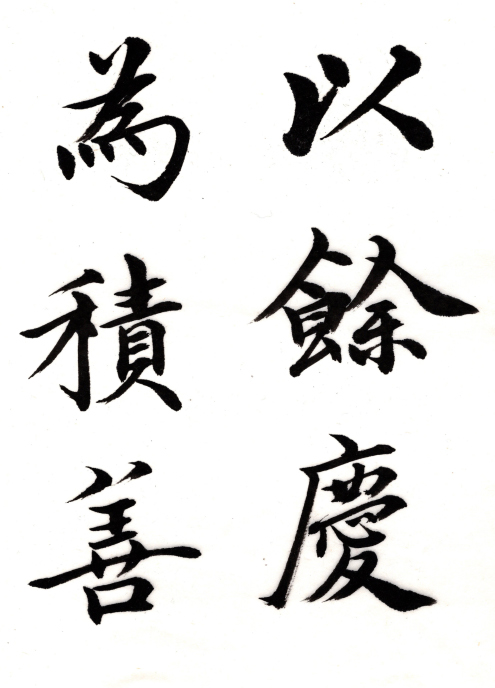 以餘慶
為積善